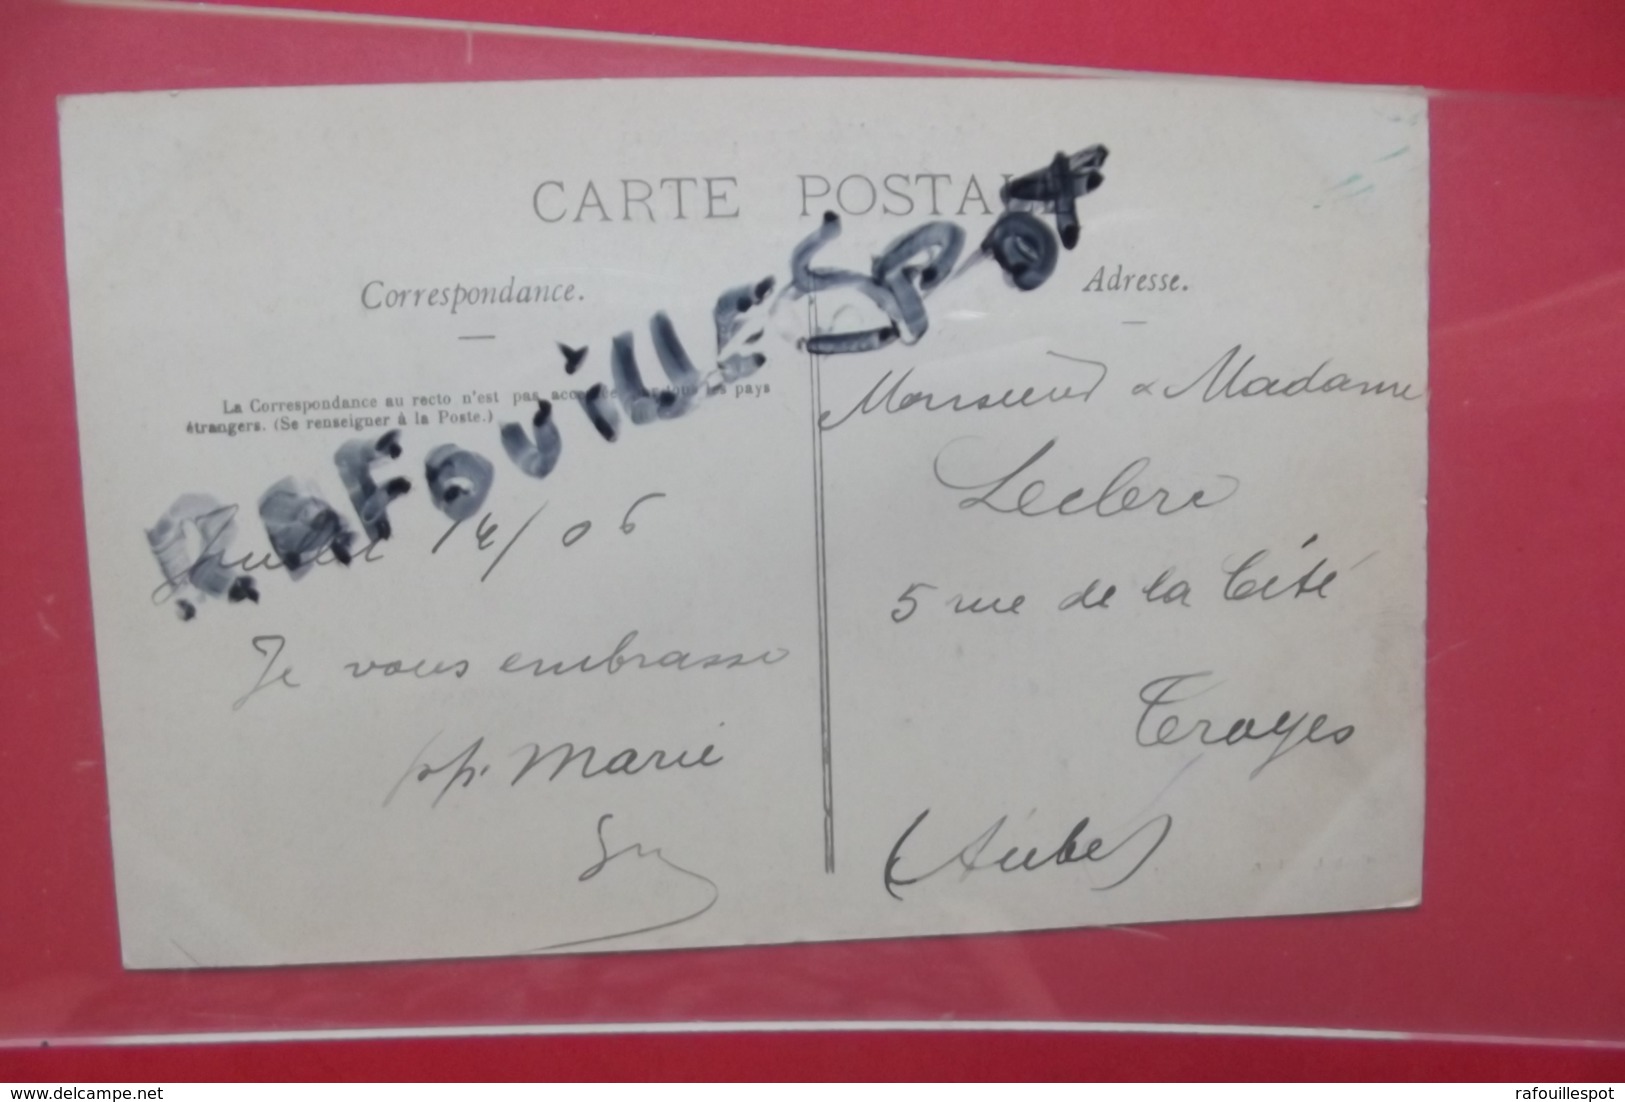 CARTE POSTALE
Correspondance.
La Correspondance au recto n'est pas acceptée par tous les pays
étrangers. (Se renseigner à la Poste.)
RAFOUiLLESPOt
Juillet 14/06
Je vous embrasse
pp. Marie
Adresse.
Monsieur & Madame
Leclerc
5 rue de la Cité
Troyes
(Aube)
delcampe.net
rafouillespot